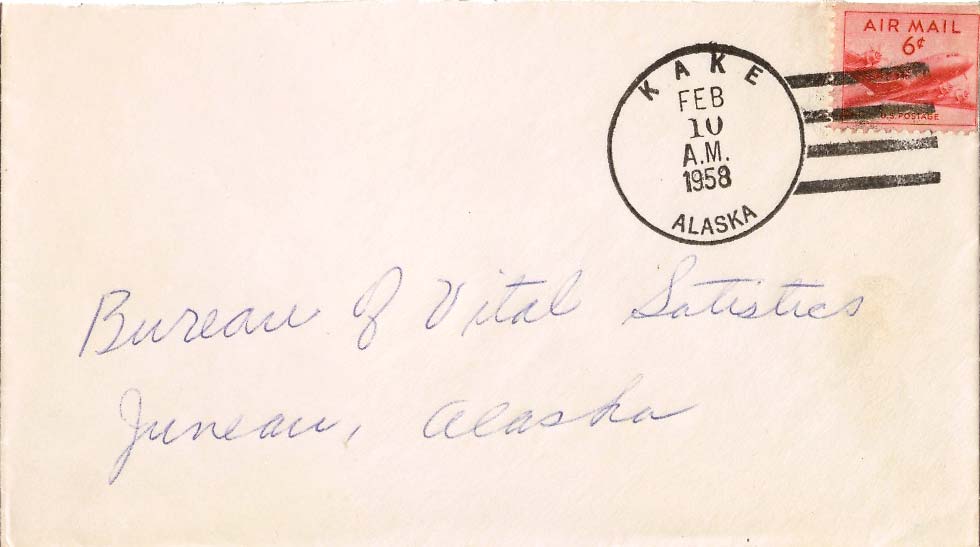 AIR MAIL
6¢
U.S. POSTAGE
KAKE
FEB
10
A.M.
1958
ALASKA
Bureau of Vital Satistics
Juneau, Alaska